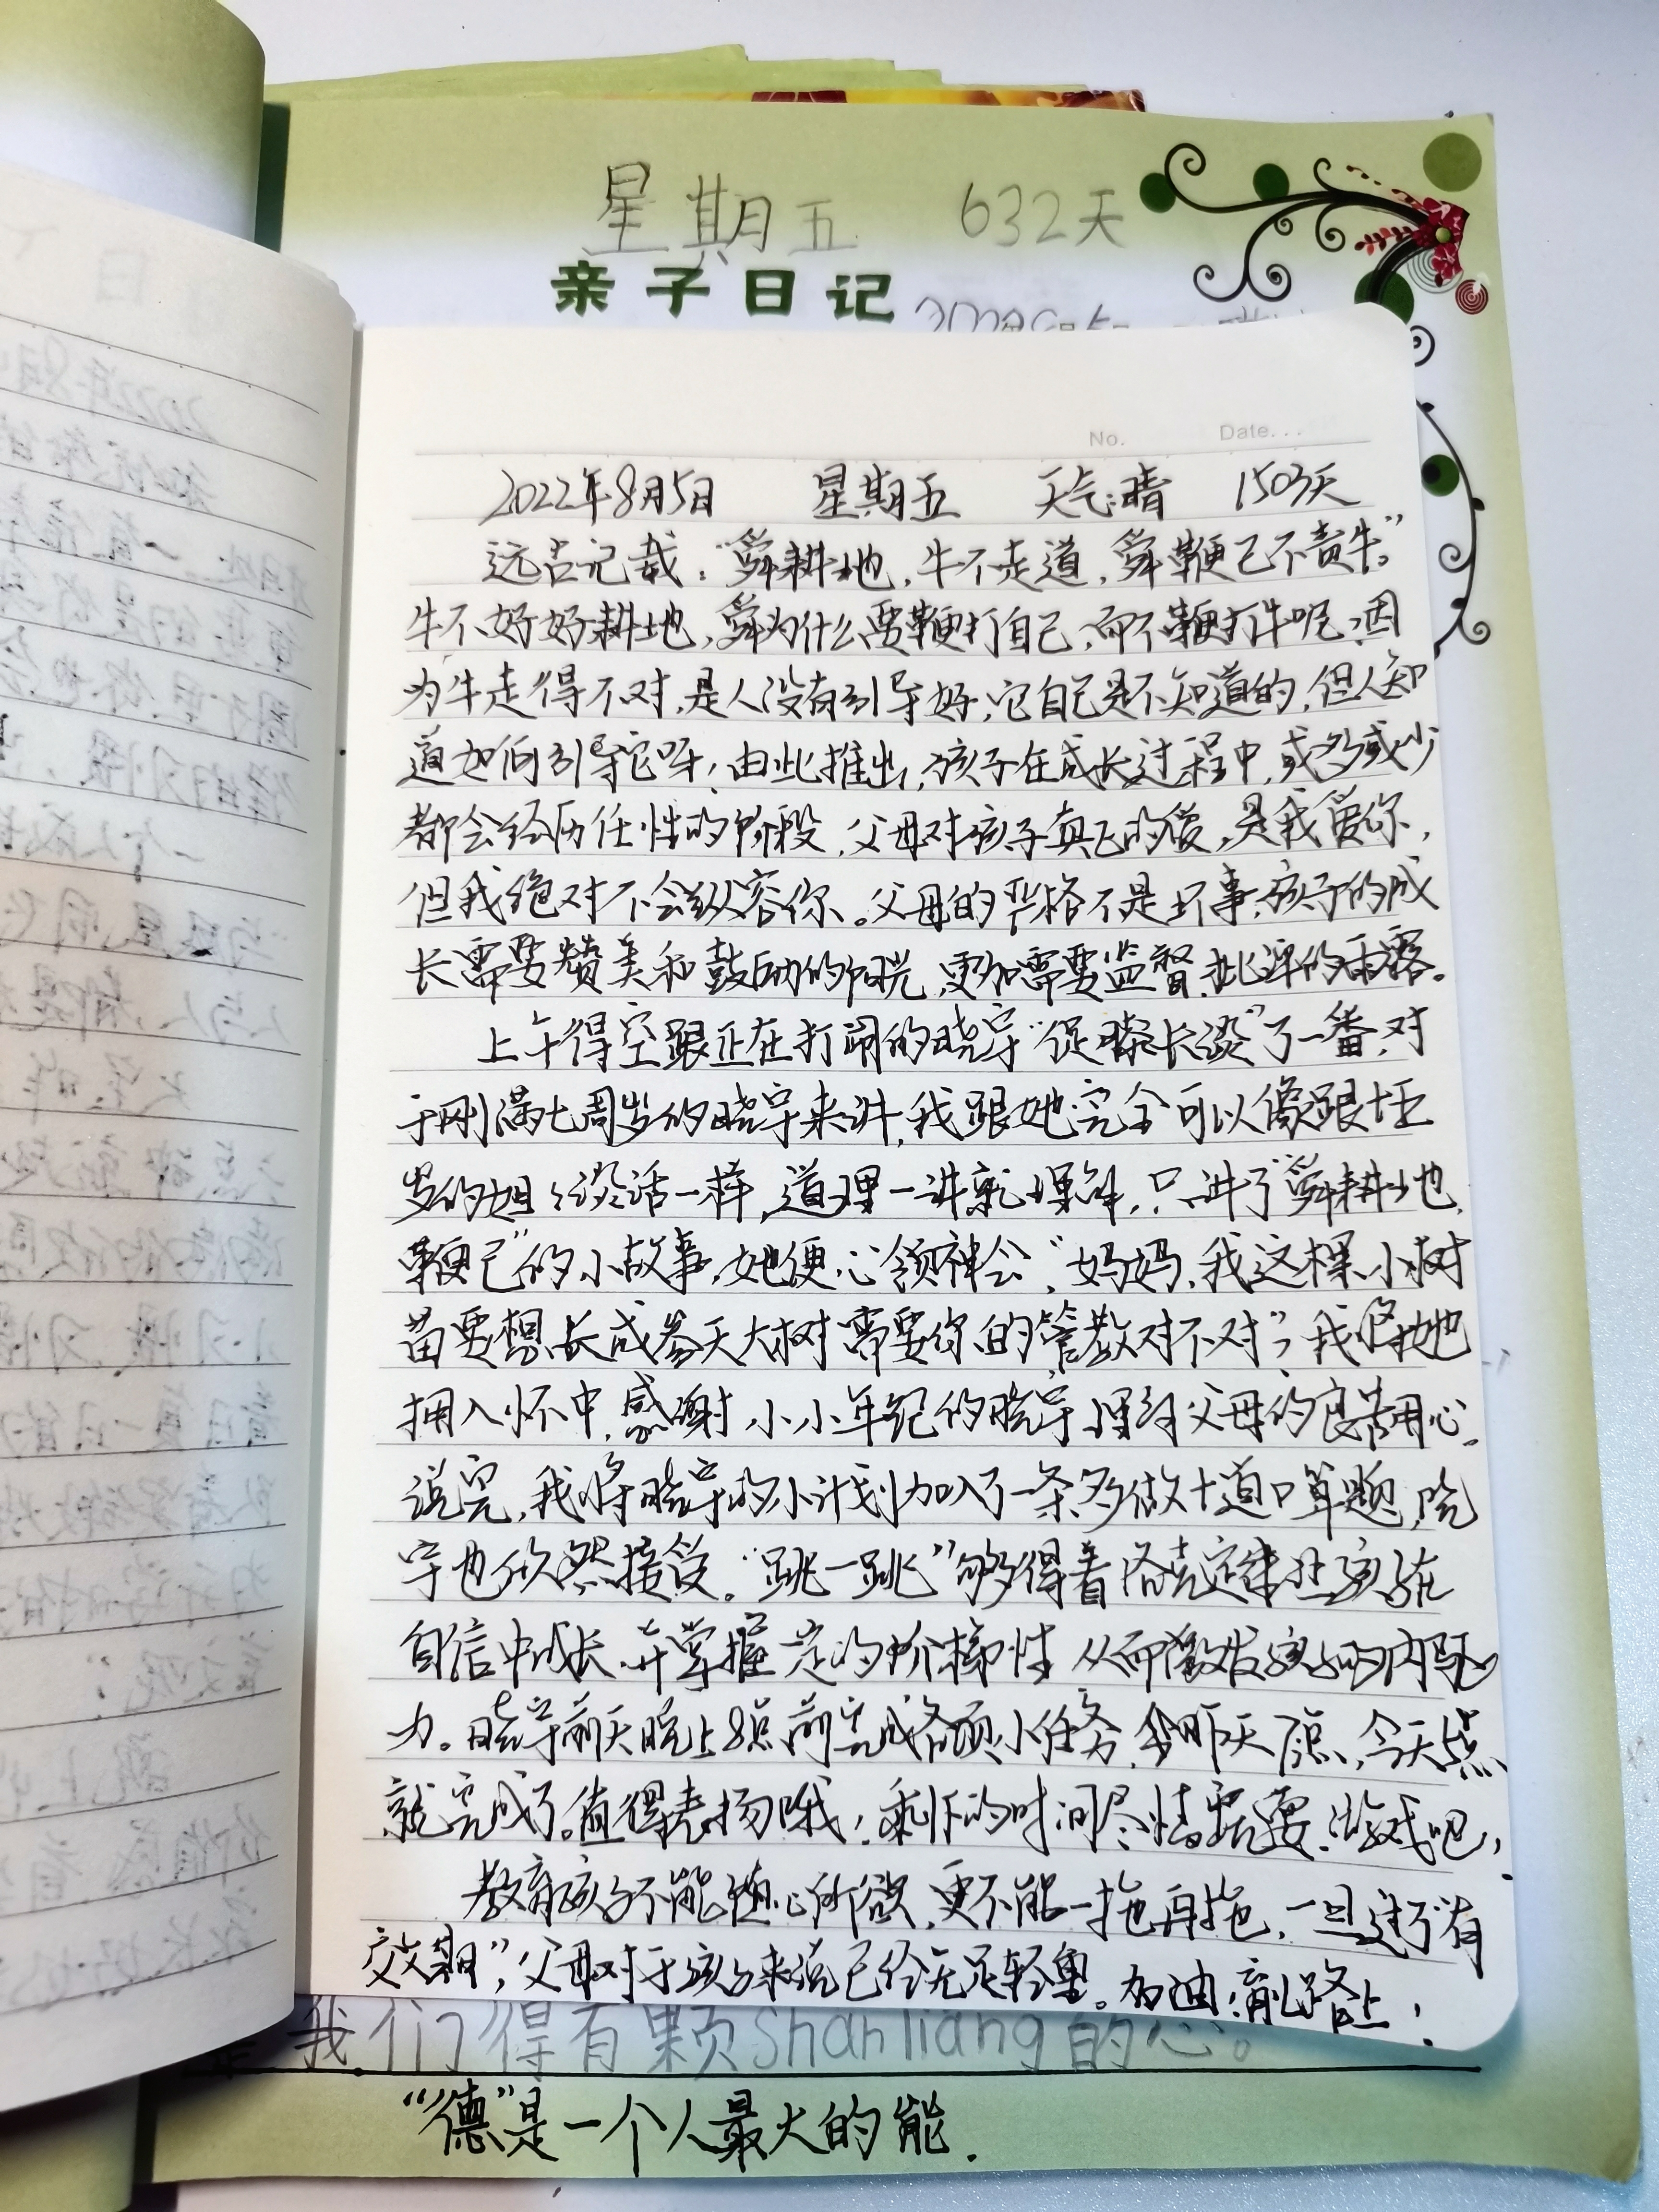 星期五 632天
亲子日记
No. Date...
2022年8月5日 星期五 天气:晴 1503天
远古记载:“舜耕地,牛不走道,舜鞭己不责牛。”
牛不好好耕地,舜为什么要鞭打自己,而不鞭打牛呢,因
为牛走得不对,是人没有引导好,它自己是不知道的,但人知
道如何引导它呀!由此推出,孩子在成长过程中,或多或少
都会经历任性的阶段,父母对孩子真正的爱,是我爱你,
但我绝对不会纵容你。父母的严格不是坏事,孩子的成
长需要赞美和鼓励的阳光,更加需要监督、批评的雨露。
上午得空跟正在打闹的晓宇“促膝长谈”了一番,对
于刚满七周岁的晓宇来讲,我跟她完全可以像跟十五
岁的姐姐谈话一样,道理一讲就理解,只讲了“舜耕地,
鞭己”的小故事,她便心领神会,“妈妈,我这棵小树
苗要想长成参天大树需要你的管教对不对”,我将她
拥入怀中,感谢小小年纪的晓宇理解父母的良苦用心。
说完,我将晓宇的小计划加入了一条多做十道口算题,晓
宇也欣然接受。“跳一跳”够得着洛克定律让孩子在
自信中成长,并掌握一定的阶梯性,从而激发孩子的内驱
力。晓宇前天晚上8点前完成各项小任务,昨天7点,今天5点
就完成了。值得表扬哦!剩下的时间尽情玩耍、游戏吧!
教育孩子不能随心所欲,更不能一拖再拖,一旦过了“有
效期”,父母对于孩子来说已经无足轻重。加油,育儿路上!
我们得有颗shanliang的心。
“德”是一个人最大的能.